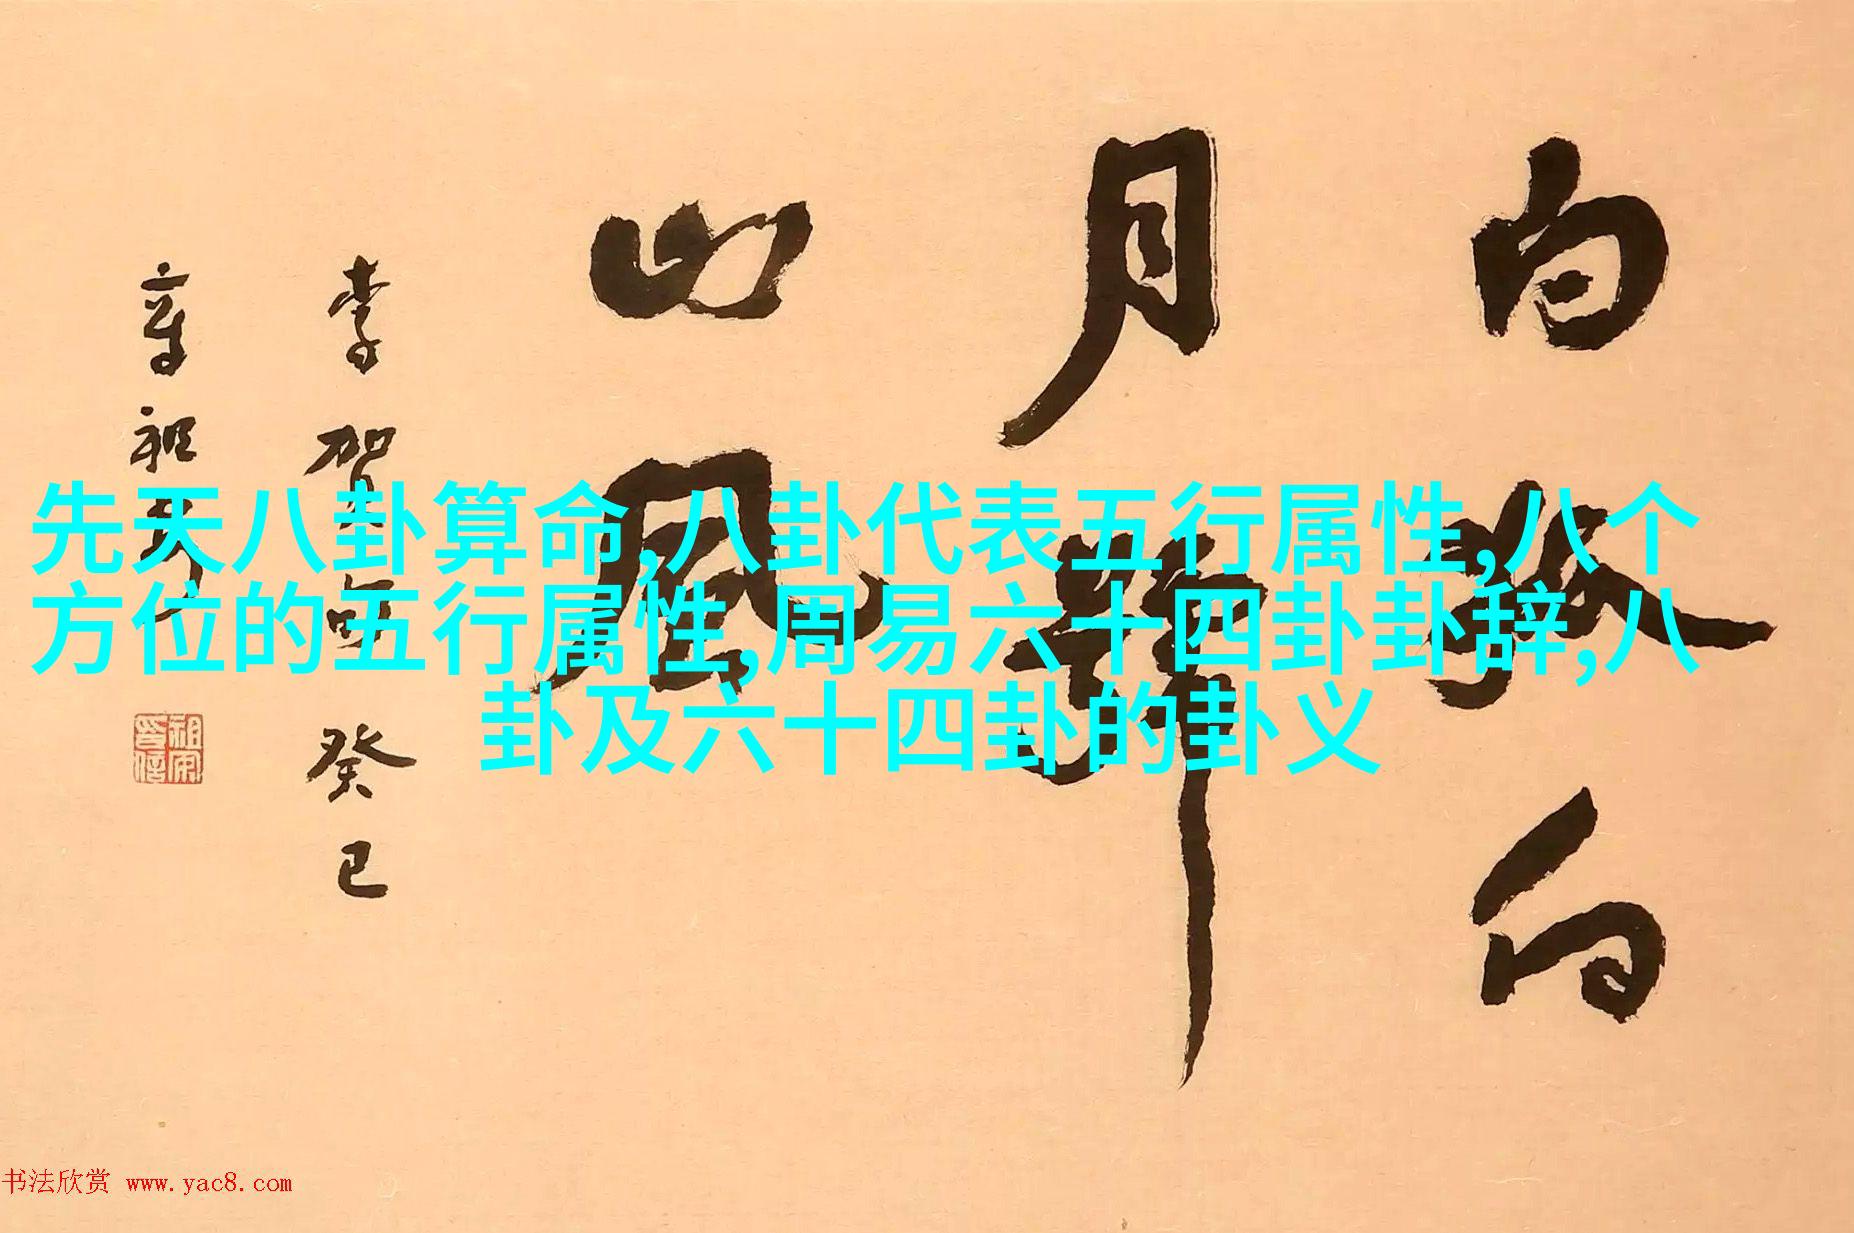 白狐向
月號
山風
李賀句 癸巳
章祖安
祖安印信
先天八卦算命,八卦代表五行属性,八个
方位的五行属性,周易六十四卦卦辞,八
卦及六十四卦的卦义
书法欣赏 www.yac8.com